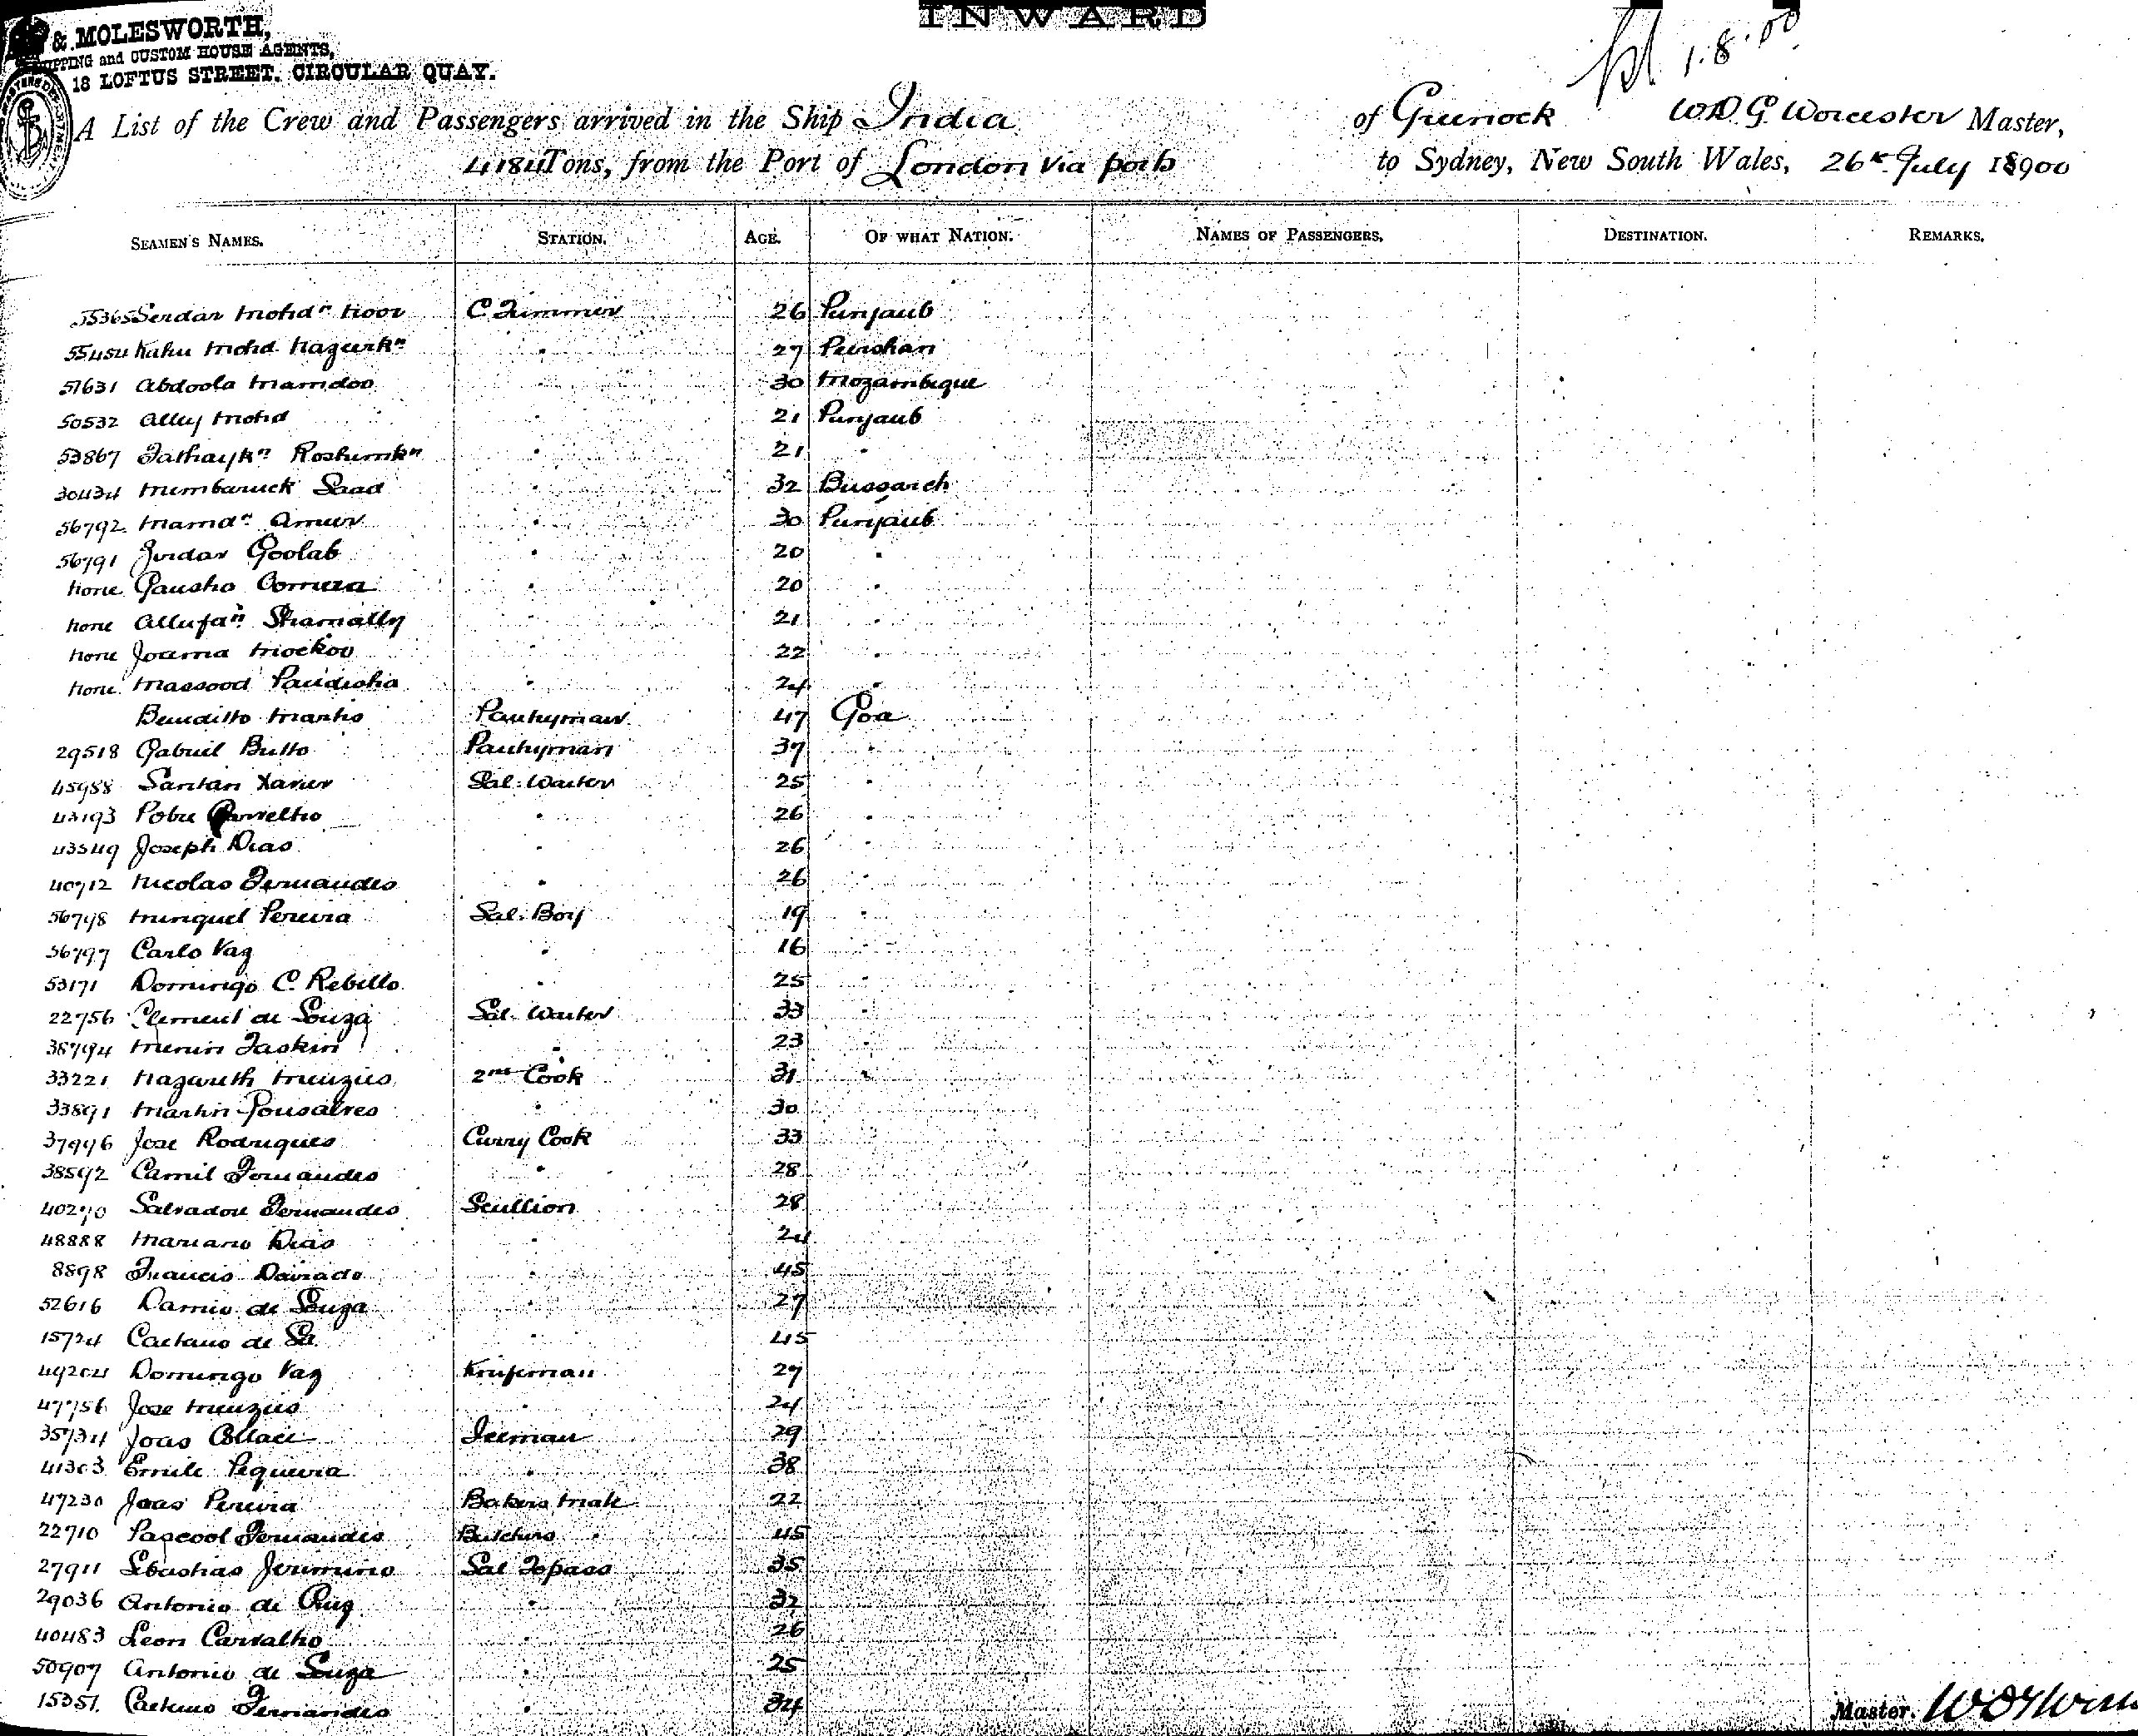 INWARD
& MOLESWORTH,
SHIPPING and CUSTOM HOUSE AGENTS,
18 LOFTUS STREET. CIRCULAR QUAY.
1.8.00
A List of the Crew and Passengers arrived in the Ship India of Greenock W.D.G. Worcester Master,
4184 Tons, from the Port of London via ports to Sydney, New South Wales, 26th July 18900
SEAMEN'S NAMES. STATION. AGE. OF WHAT NATION. NAMES OF PASSENGERS. DESTINATION. REMARKS.
55365 Serdar Mohdn Noor C Trimmer 26 Punjaub
55454 Mohd " 27 Pershan
57631 Abdoola Mamdoo " 30 Mozambique
50532 Alley Mohd " 21 Punjaub
53867 " 21 "
30434 Mumbaruck Saad " 32 Bussareh
56792 Mamdn Ameer " 30 Punjaub
56791 Goolab " 20 "
None " 20 "
None Shamally " 21 "
None Jooma " 22 "
None Massood " 24 "
Benditto Pantryman 47 Goa
29518 Gabriel Britto Pantryman 37 "
45988 Santan Xavier Sal: Waiter 25 "
43193 Carvelho " 26 "
43549 Joseph Dias " 26 "
40712 Nicolas Fernandes " 26 "
56798 Minguel Pereira Sal: Boy 19 "
56797 Carlo Vaz " 16 "
53171 Domingo C. Rebello " 25 "
22756 Clement de Souza Sal: Waiter 33 "
38794 " 23 "
33221 Nazareth Menzies 2nd Cook 31 "
33891 Martin Gonsalves " 30
37996 Jose Rodrigues Curry Cook 33
38592 Camil Fernandes " 28
40270 Salvadore Fernandes Scullion 28
48888 Mariano Dias " 24
8898 Francis " 45
52616 de Souza " 27
15724 Caetano de Sa " 45
49204 Domingo Vaz Knifeman 27
47756 Jose Menzies " 24
35734 Joas Collaco Iceman 29
41303 Emile Sequeira " 38
47230 Joas Pereira Bakers Mate 22
22710 Pascool Fernandes Butchers " 45
27911 Sebastias Jeremino Sal Topass 35
29036 Antonio de Cruz " 32
40483 Leon Carvalho " 26
50907 Antonio de Souza " 25
15351 Caetano Fernandes " 34
Master.